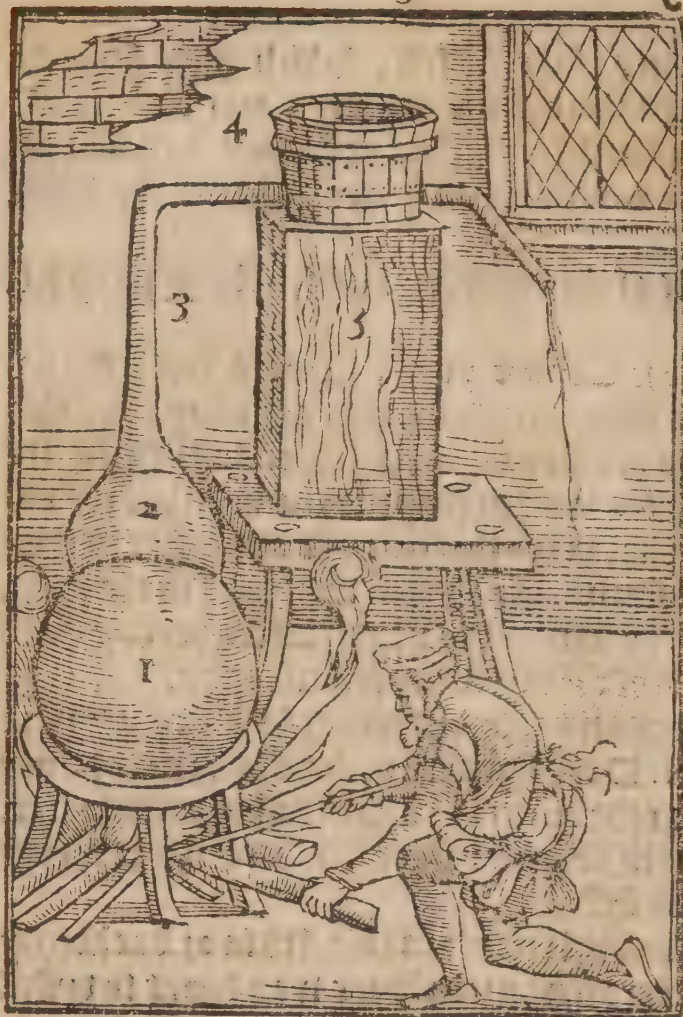 4
3
5
2
1